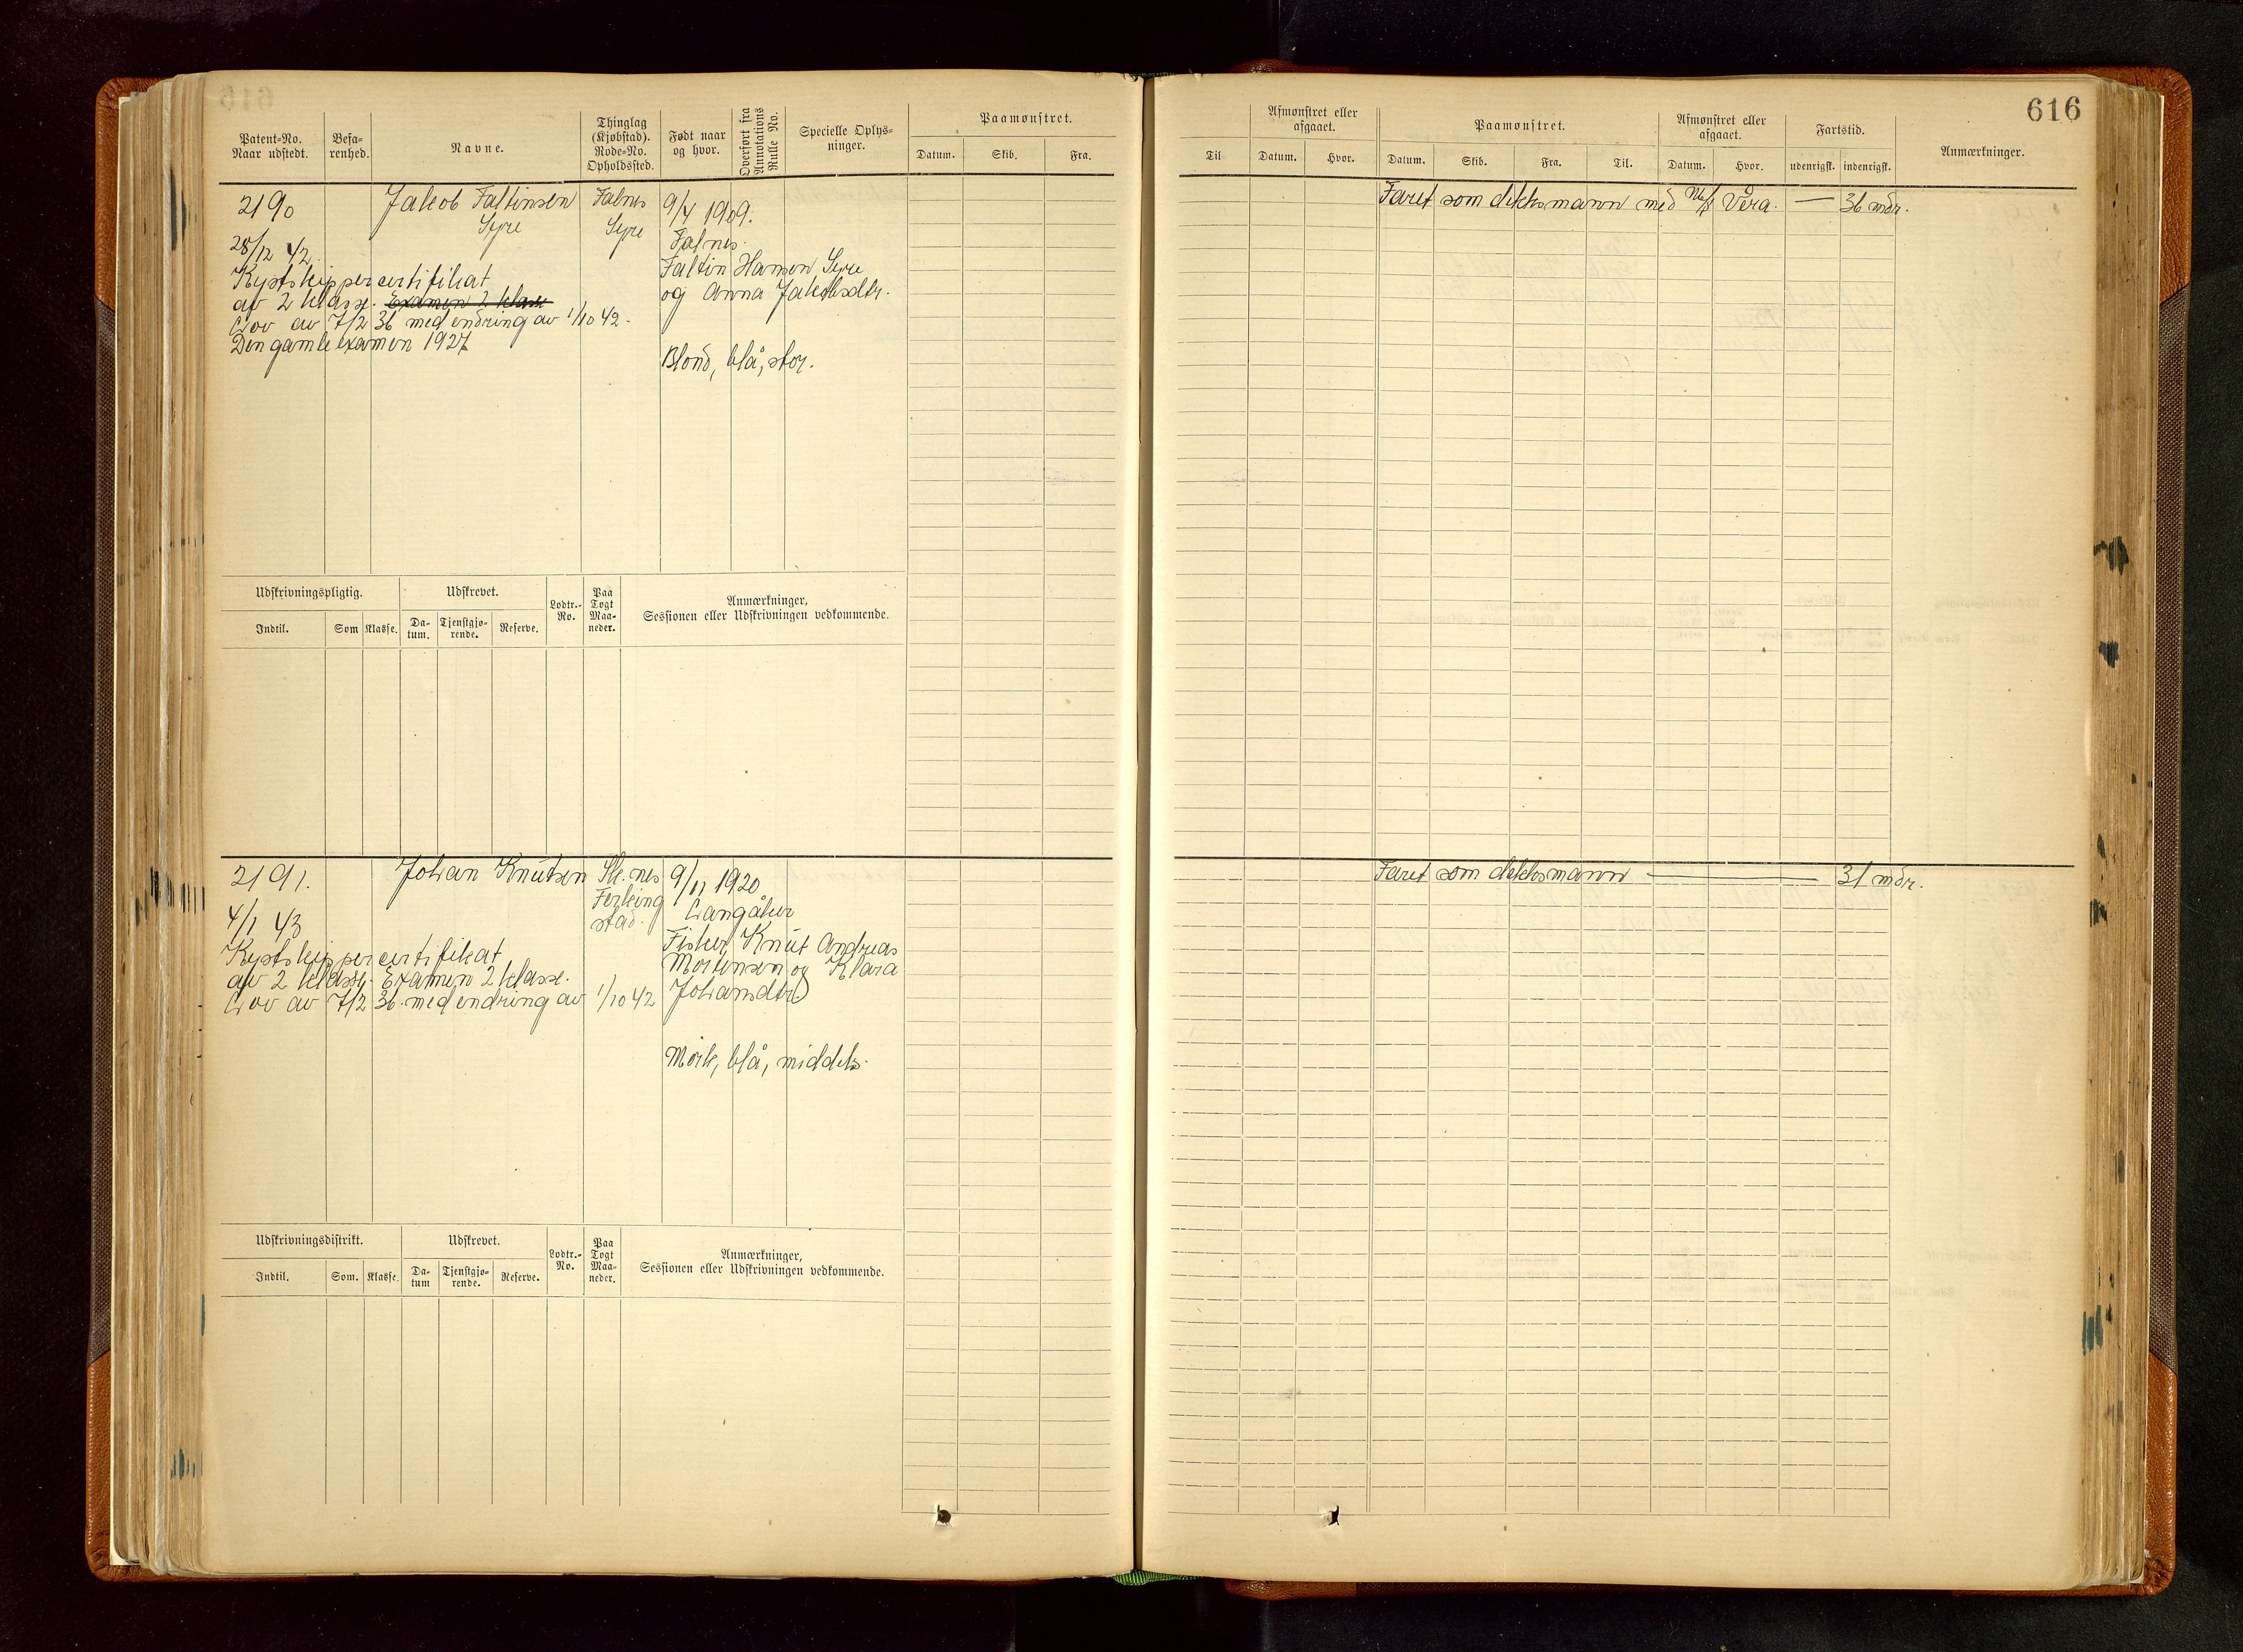 616
Patent-No.
Naar udstedt.
Befa-
renhed.
Navne.
Thinglag
(Kjøbstad).
Rode-No.
Opholdssted.
Født naar
og hvor.
Overført fra
Annotations
Rulle No.
Specielle Oplys-
ninger.
Paamønstret.
Datum. Skib. Fra.
Til
Afmønstret eller
afgaaet.
Datum. Hvor.
Paamønstret.
Datum. Skib. Fra. Til.
Afmønstret eller
afgaaet.
Datum. Hvor.
Fartstid.
udenrigsk. indenrigsk.
Anmærkninger.
2190 Jakob Faltinsen Falnes 9/4 1909.
Syre Syre Falnes.
28/12 42.
Faltin Hansen Syre
Kystskippercertifikat
og Anna Jakobsdtr.
av 2 klasse. Examen 2 klasse
Lov av 7/2 36 med endring av 1/10 42.
Den gamle examen 1927
Blond, blå, stor.
Faret som dekksmann med M/k Vera. — 36 mdr.
Udskrivningspligtig.
Indtil. Som Klasse.
Udskrevet.
Da-
tum.
Tjenstgjø-
rende.
Reserve.
Lodtr.-
No.
Paa
Togt
Maa-
neder.
Anmærkninger,
Sessionen eller Udskrivningen vedkommende.
2191. Johan Knutsen Sk.nes 9/11 1920
Ferking
stad.
Langåker
4/1 43
Fisker Knut Andreas
Mortensen og Klara
Johansdtr
Kystskippercertifikat
av 2 klasse. Examen 2 klasse.
Lov av 7/2 36. med endring av 1/10 42
Mørk, blå, middels.
Faret som dekksmann — 31 mdr.
Udskrivningsdistrikt.
Indtil. Som. Klasse.
Udskrevet.
Da-
tum
Tjenstgjø-
rende.
Reserve.
Lodtr.-
No.
Paa
Togt
Maa-
neder.
Anmærkninger,
Sessionen eller Udskrivningen vedkommende.